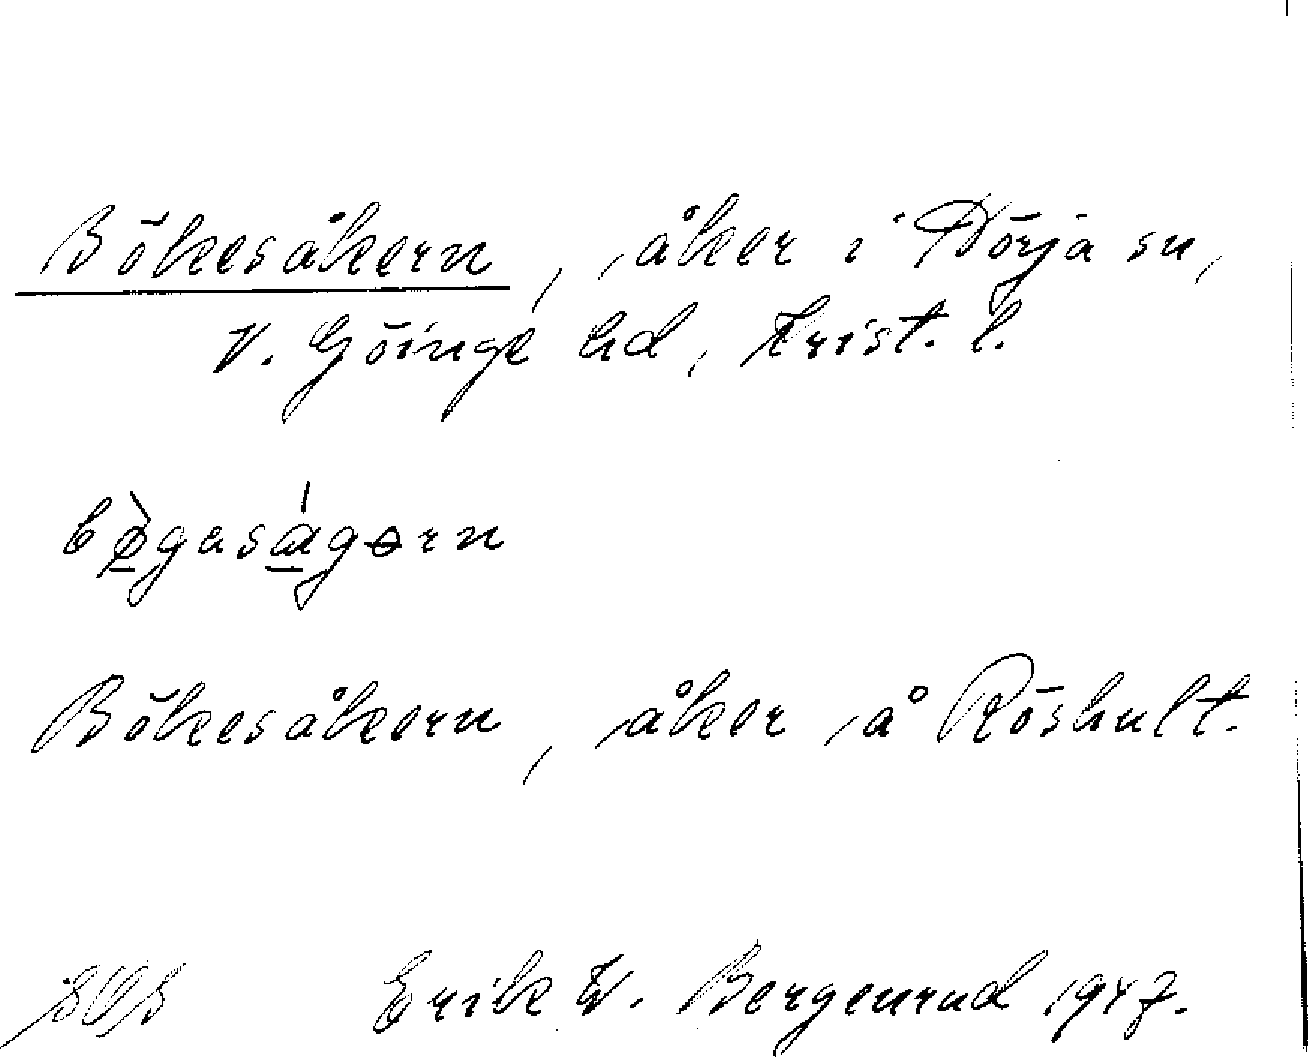 Bökesåkern, åker i Nörja sn,
V. Göinge hd, Krist. l.
bø̀gaságərn
Bökesåkern, åker å Röshult.
Erik W. Bergenrud 1947.